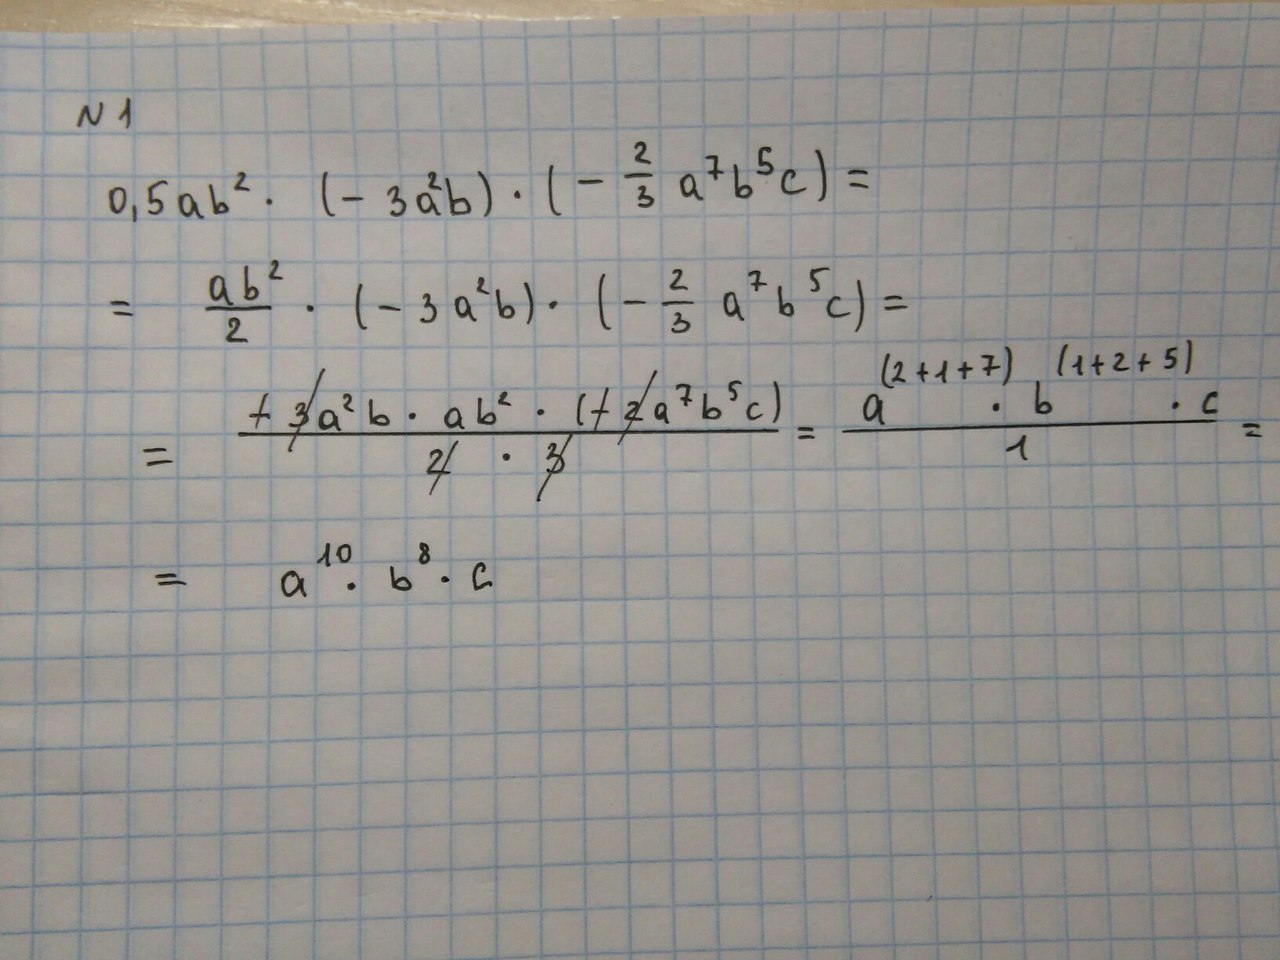 N 1
0,5ab² · (− 3a²b) · (− 2/3 a⁷b⁵c) =
= ab²/2 · (− 3a²b) · (− 2/3 a⁷b⁵c) =
= (+ 3a²b · ab² · (+ 2a⁷b⁵c))/(2 · 3) = (a⁽²⁺¹⁺⁷⁾ · b⁽¹⁺²⁺⁵⁾ · c)/1 =
= a¹⁰ · b⁸ · c